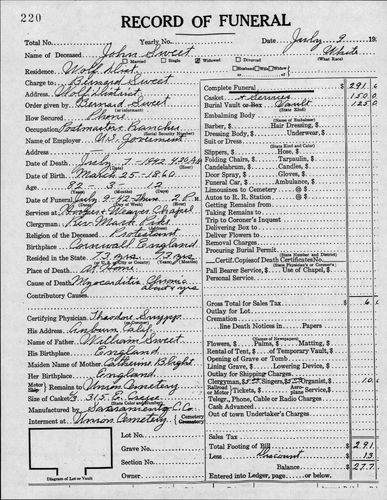 220
RECORD OF FUNERAL
Total No. Yearly No. Date July 9, 19
Name of Deceased John Sweet White
Married Single Widowed Divorced (What Race)
Residence Wolf Dist. Husband Wife Widow
Charge to Bernard Sweet
Address Wolf District
Order given by Bernard Sweet
How Secured Phone
Occupation Postmaster & Rancher
Name of Employer U.S. Government
Date of Death July 7-1942 4:20 AM
Date of Birth March 25-1860
Age 82-3-12
(Years) (Months) (Days)
Date of Funeral July 9-42 Thurs. 2 P.M.
Services at Hooper & Weaver Chapel
Clergyman Rev. Mark
Religion of the Deceased Protestant
Birthplace Cornwall England
Resided in the 73 yrs 73 yrs
Place of Death At Home
Cause of Death Myocarditis Chronic
Contributory Causes
Certifying Physician Theodore
His Address Auburn Calif.
Name of Father William Sweet
His Birthplace England
Maiden Name of Mother Catherine Blight
Her Birthplace England
Motor Ship Remains to Union Cemetery
Size of Casket 6/3 315 E. Crepe
Manufactured by Sacramento C. Co.
Interment at Union Cemetery Cemetery Crematory
Lot No.
Grave No.
Section No.
Owner
Diagram of Lot or Vault
Complete Funeral $ 291.6
Casket & Services 150.0
Burial Vault or Box Vault 125.0
(State Kind)
Embalming Body
(Name of Embalmer)
Barber, $ Hair Dressing, $
Dressing Body, $ Underwear, $
Suit or Dress
(State Kind and Color)
Slippers, $ Hose, $
Folding Chairs, $ Tarpaulin, $
Candelabrum, $ Candles, $
Door Spray, $ Gloves, $
Funeral Car, $ Ambulance, $
Limousines to Cemetery @ $
Autos to R. R. Station @ $
Getting Remains from
Taking Remains to
Trip to Coroner's Inquest
Delivering Box to
Deliver Flowers to
Removal Charges
Procuring Burial Permit
(State Number and District)
Certif. Copies of Death Certificate No.
(State Physician's or Coroner's)
Pall Bearer Service, $ Use of Chapel, $
Personal Service
Gross Total for Sales Tax $ 6
Outlay for Lot
Cremation
line Death Notices in Papers
(Names of Newspapers)
Flowers, $ Palms, $ Matting, $
Rental of Tent, $ of Temporary Vault, $
Opening of Grave or Tomb
Lining Grave, $ Lowering Device, $
Outlay for Shipping Charges
Clergyman, $ Singers, $ Organist, $ 10
Railroad Tickets, $ Aeroplane Service, $
Telegr., Phone, Cable or Radio Charges
Cash Advanced
Out of town Undertaker's Charges
Sales Tax
Total Footing of Bill $ 291
Less discount $ 13
Balance $ 277
Entered into Ledger, page or below.